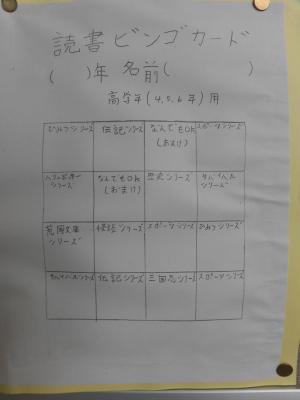 読書ビンゴカード
(　　)年 名前(　　　　　)
高学年(4,5,6年)用
伝記シリーズ
なんでもOK
(おまけ)
スポーツシリーズ
ハリーポッター
シリーズ
なんでもOK
(おまけ)
歴史シリーズ
サバイバル
シリーズ
シリーズ
怪談シリーズ
スポーツシリーズ
シリーズ
サバイバルシリーズ
伝記シリーズ
三国志シリーズ
スポーツシリーズ